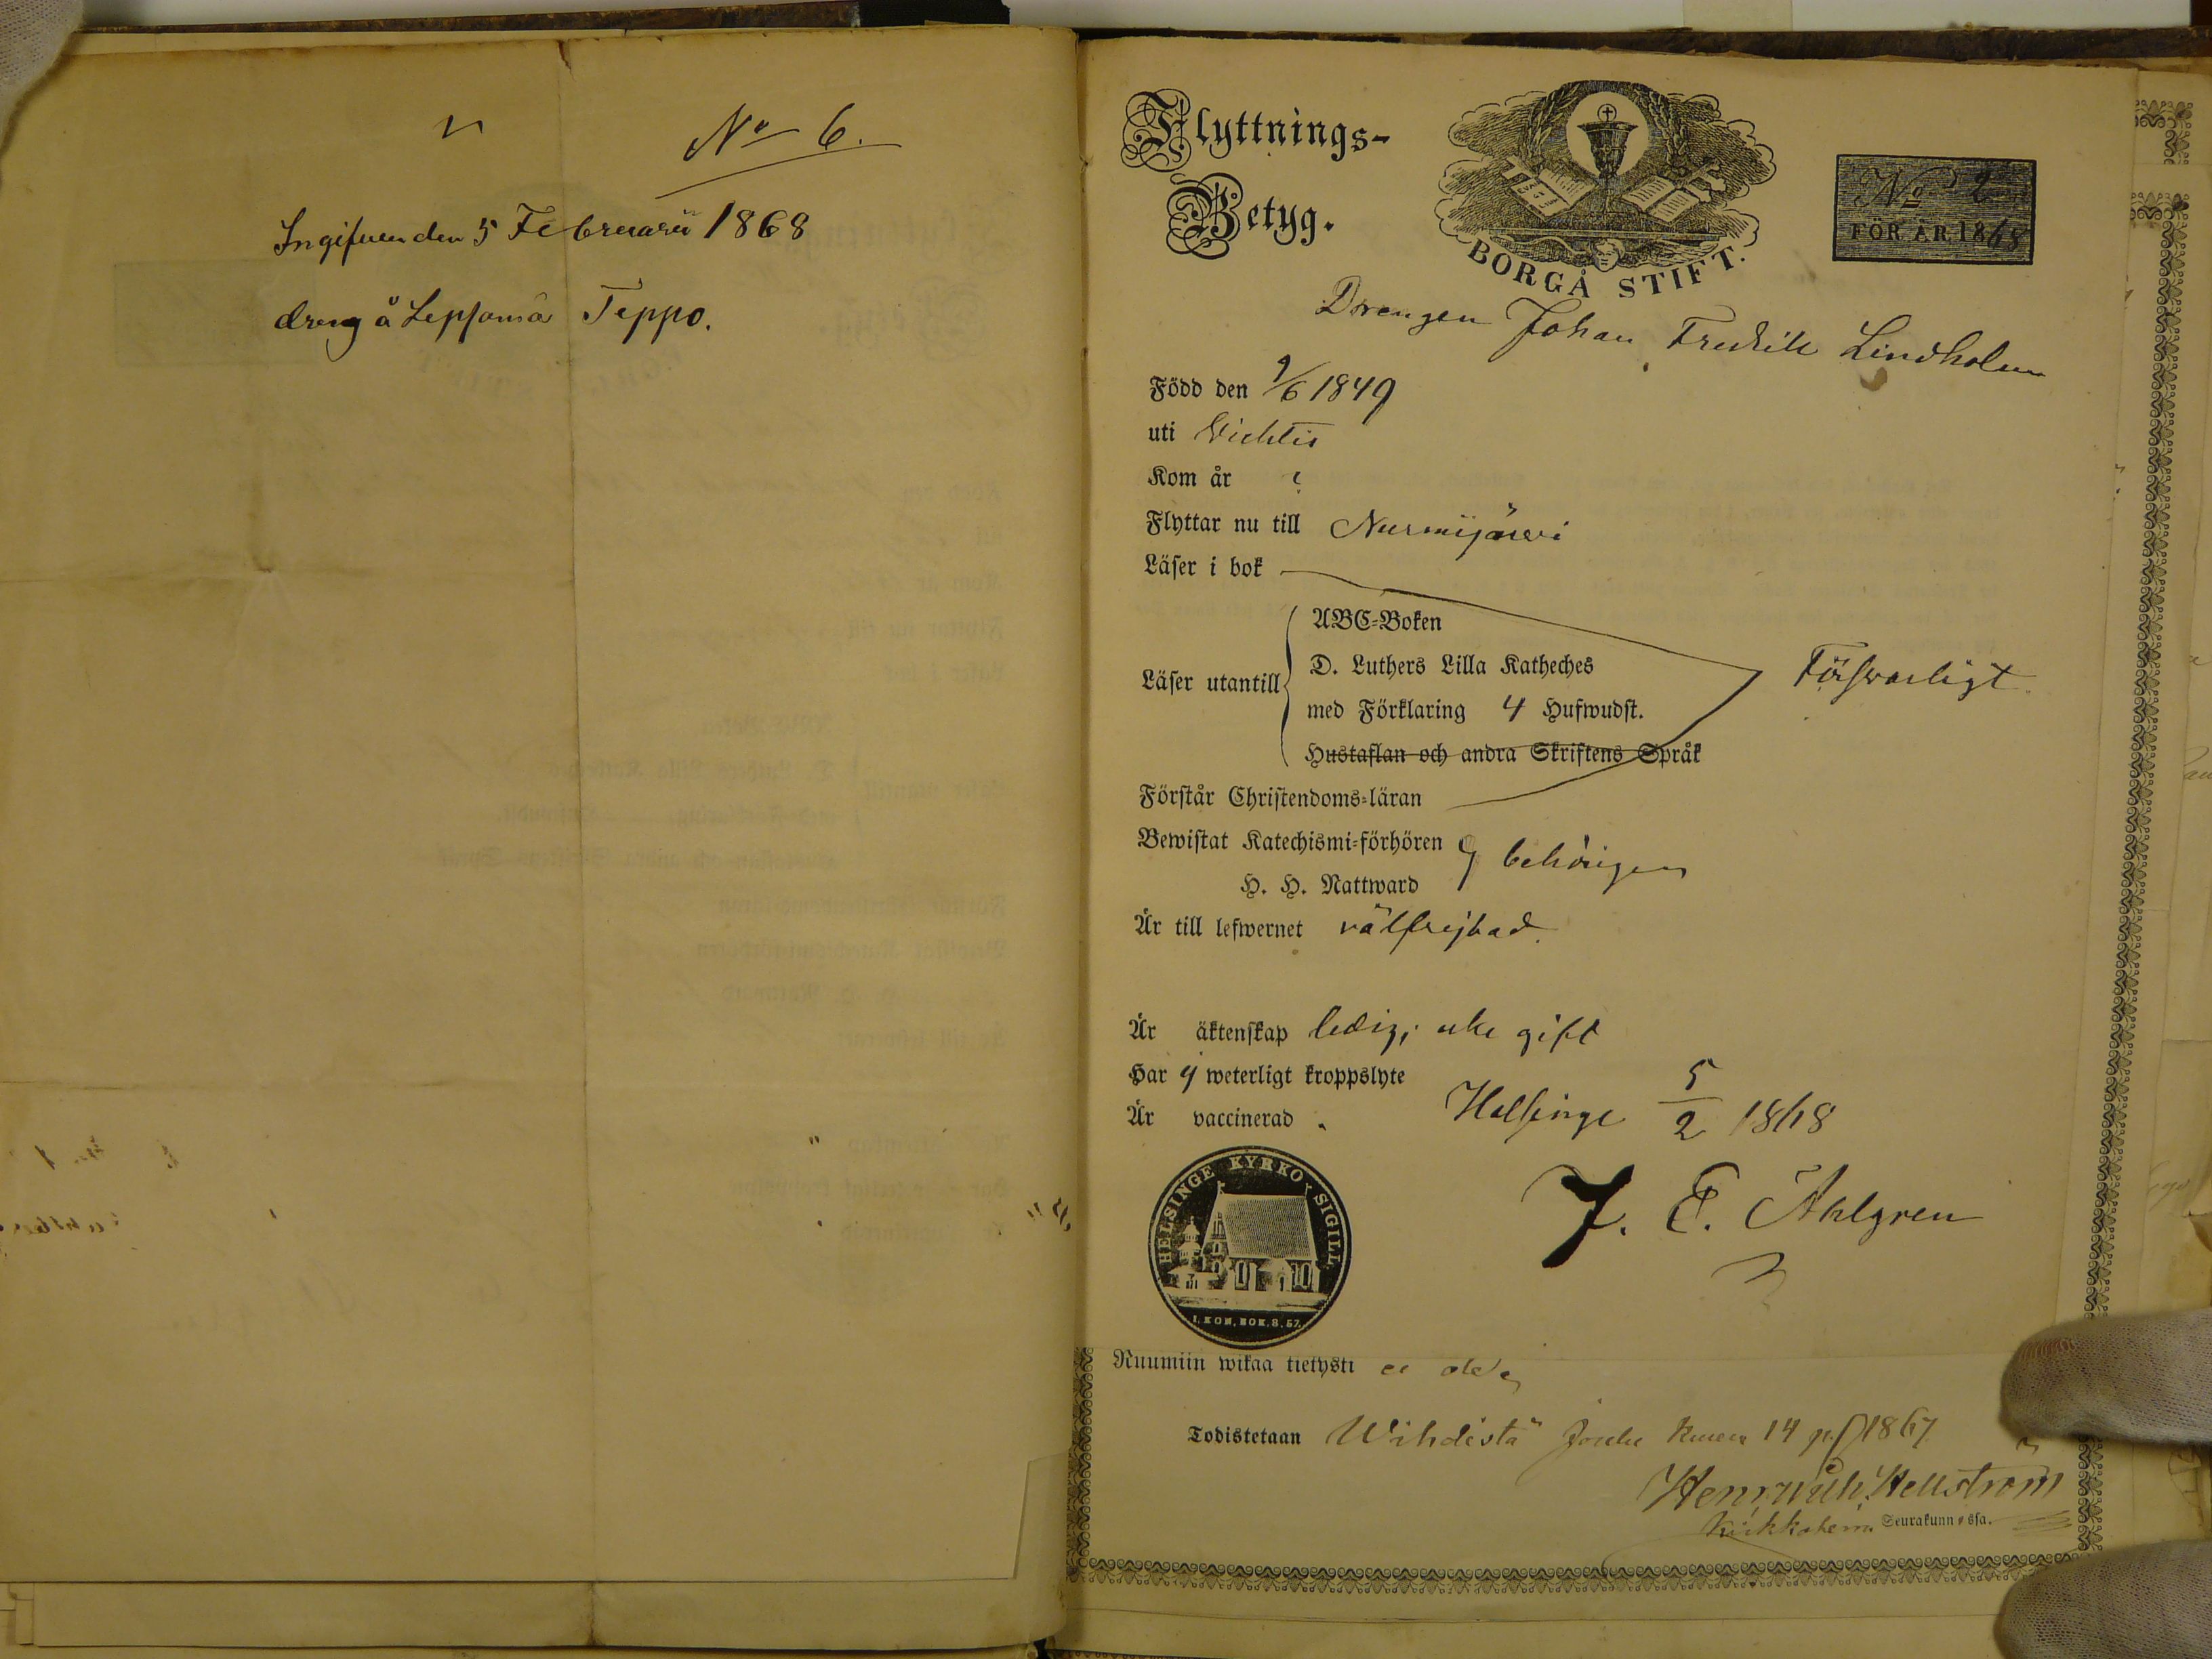 No 6.
Ingifven den 5 Februarii 1868
dreng å Lepsamä Teppo.
Flyttnings-
Betyg.
BORGÅ STIFT.
No 2
FÖR ÅR 1868
Drengen Johan Fredrik Lindholm
Född den 9/6 1849
uti Vichtis
Kom år
Flyttar nu till Nurmijärvi
Läser i bok
ABC-Boken
Läser utantill D. Luthers Lilla Katheches
med Förklaring 4 Hufwudst.
Försvarligt
Hustaflan och andra Skriftens Språk
Förstår Christendoms-läran
Bewistat Katechismi-förhören
H. H. Nattward
behörigen
Är till lefwernet välfrejdad.
Är äktenskap ledig; icke gift
Har ej weterligt kroppslyte
Är vaccinerad
Helsinge 5/2 1868
J. E. Ahlgren
HELSINGE KYRKO SIGILL
I. KON. BOK. 8. 57.
Ruumiin wikaa tietysti ei ole
Todistetaan Wihdistä Joulu kuun 14 p. 1867.
Hellström
Kirkkoherra Seurakunnassa.